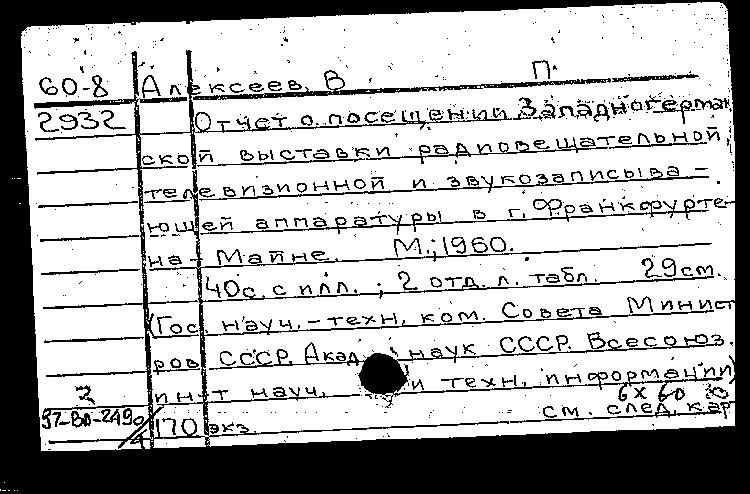 60-8 Алексеев, В П.
2932 Отчет о посещении Западногерман
ской выставки радиовещательной,
телевизионной и звукозаписыва-
ющей аппаратуры в г. Франкфурте-
на-Майне. М.; 1960.
40с. с илл. ; 2 отд. л. табл. 29см.
(Гос. науч.-техн. ком. Совета Минист
ров СССР. Акад. наук СССР. Всесоюз.
2 ин-т науч. и техн. информации)
6х60
170 экз. см. след. кар